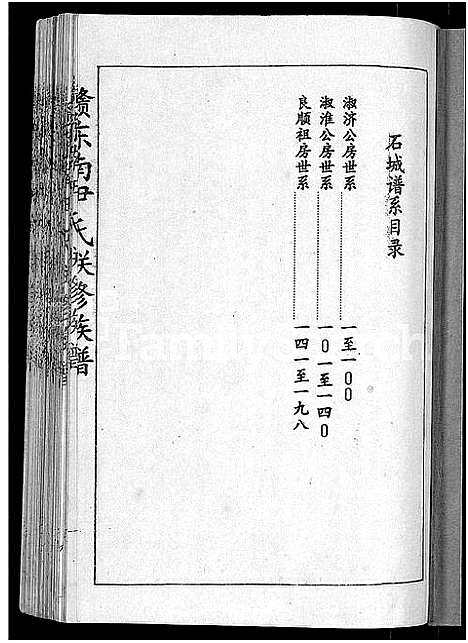 石城谱系目录
淑济公房世系……………一至一00
淑淮公房世系……………一0一至一四0
良顺祖房世系……………一四一至一九八
赣东南尹氏联修族谱